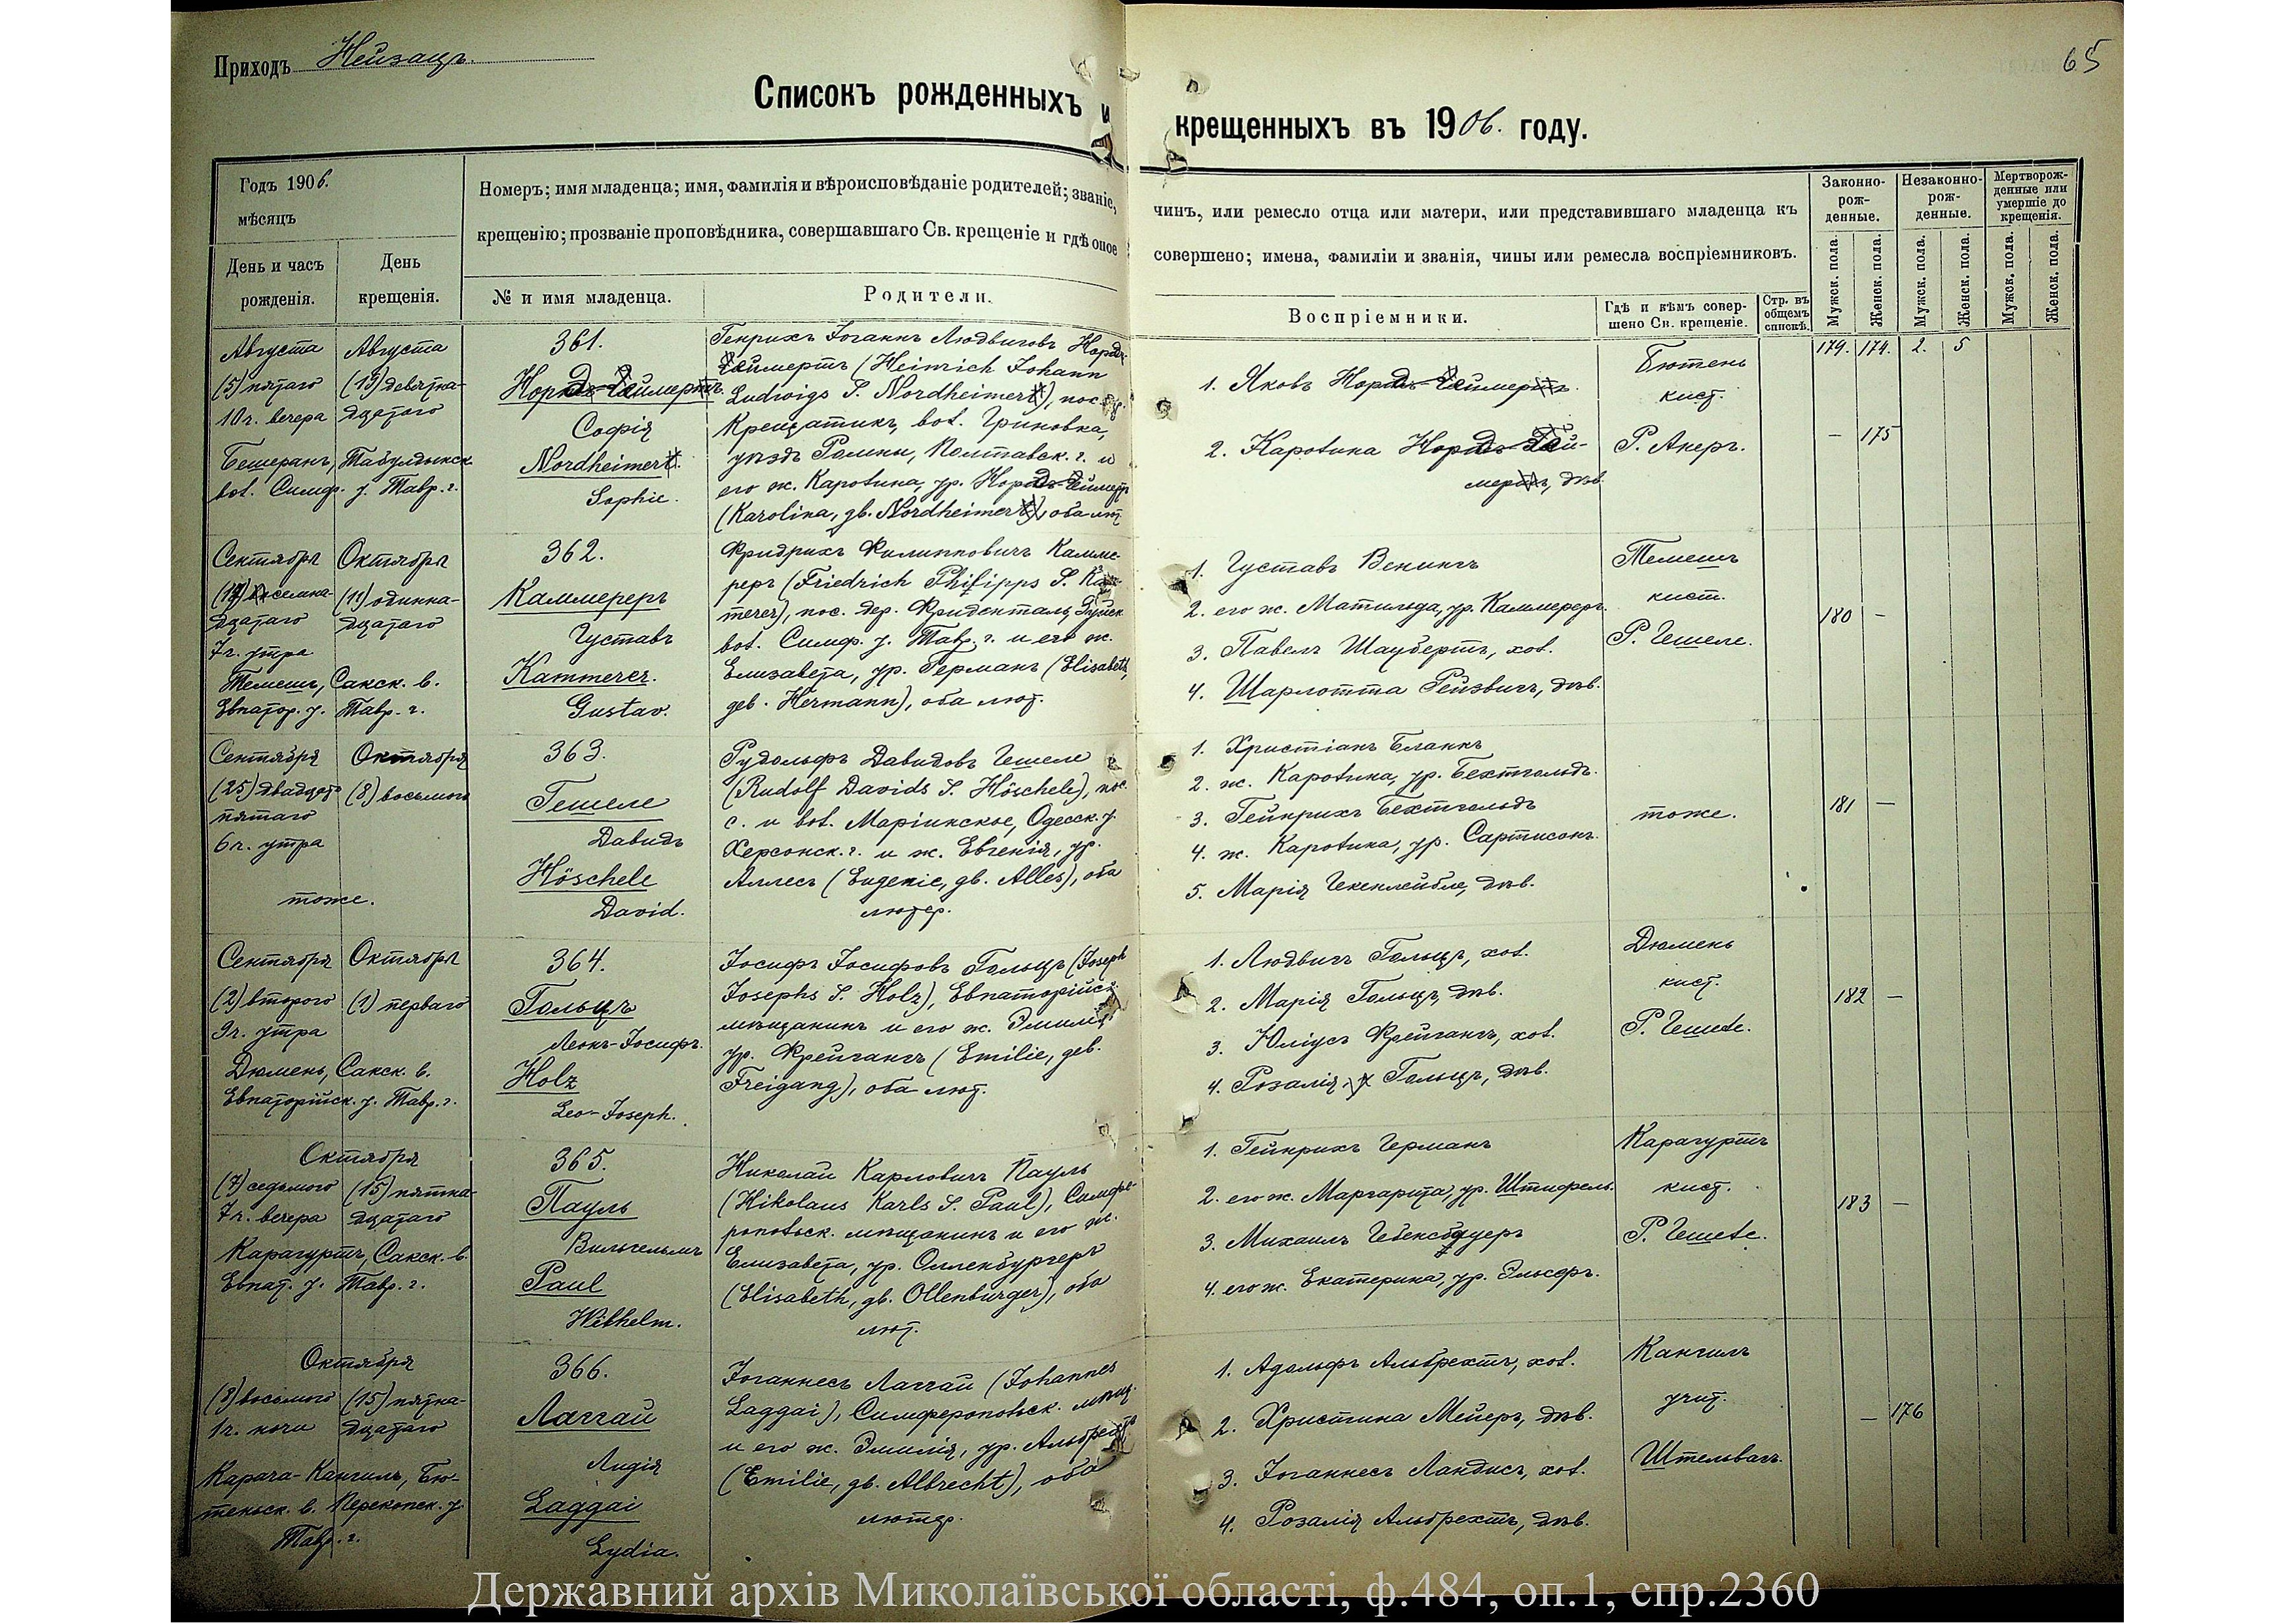 Приходъ Нейзацъ.
65
Списокъ рожденныхъ и крещенныхъ въ 1906. году.
Годъ 1906.
мѣсяцъ
День и часъ рожденія.
День крещенія.
Номеръ; имя младенца; имя, фамилія и вѣроисповѣданіе родителей; званіе, чинъ, или ремесло отца или матери, или представившаго младенца къ
крещенію; прозваніе проповѣдника, совершавшаго Св. крещеніе и гдѣ оное совершено; имена, фамиліи и званія, чины или ремесла воспріемниковъ.
№ и имя младенца.
Родители.
Воспріемники.
Гдѣ и кѣмъ совершено Св. крещеніе.
Стр. въ общемъ спискѣ.
Законно-рож-денные.
Незаконно-рож-денные.
Мертворож-денные или умершіе до крещенія.
Мужск. пола.
Женск. пола.
Мужск. пола.
Женск. пола.
Мужск. пола.
Женск. пола.
179. 174. 2. 5
Августа
(5) пятаго
10 ч. вечера
Августа
(19) девятна-
дцатаго
Бешеранъ, Табулдынск.
вол. Симф. у. Тавр. г.
361.
Софія
Nordheimer
Sophie.
Генрихъ Іоганнъ Людвиговъ Норд-
геймеръ (Heinrich Johann
Ludwigs S. Nordheimer), пос.
Крещатикъ, вол. Гриновка,
уѣздъ Ромны, Полтавск. г. и
его ж. Каролина, ур.
(Karolina, gb. Nordheimer), оба лют.
1. Яковъ
2. Каролина
дѣв.
Бютень
кист.
Р. Акеръ.
— 175
Сентября
дцатаго
7 ч. утра
Октября
(11) одинна-
дцатаго
Темешъ, Сакск. в.
Евпатор. у. Тавр. г.
362.
Каммереръ
Густавъ
Kammerer.
Gustav.
Фридрихъ Филипповичъ Камме-
реръ (Friedrich Philipps S. Kam-
merer), пос. дер. Фриденталь,
вол. Симф. у. Тавр. г. и его ж.
Елизавета, ур. Германъ (Elisabeth,
geb. Hermann), оба лют.
1. Густавъ Венингъ
2. его ж. Матильда, ур. Каммереръ.
3. Павелъ Шаубертъ, хол.
4. Шарлотта Рейзвигъ, дѣв.
Темешъ
кист.
Р. Гешеле.
180 —
Сентября
(25) двадцать
пятаго
6 ч. утра
Октября
(8) восьмого
тоже.
363.
Гешеле
Давидъ
Höschele
David.
Рудольфъ Давидовъ Гешеле
(Rudolf Davids S. Höschele), пос.
с. и вол. Маріинское, Одесск. у.
Херсонск. г. и ж. Евгенія, ур.
Аллесъ (Eugenie, gb. Alles), оба
лютер.
1. Христіанъ Бланкъ
2. ж. Каролина, ур. Бехтгольдъ.
3. Гейнрихъ Бехтгольдъ
4. ж. Каролина, ур. Сартисонъ.
5. Марія Гекенлейбле, дѣв.
тоже.
181 —
Сентября
(2) второго
9 ч. утра
Октября
(1) перваго
Дюмень, Сакск. в.
Евпаторійск. у. Тавр. г.
364.
Гольцъ
Леонъ-Іосифъ.
Holz
Leo-Joseph.
Іосифъ Іосифовъ Гольцъ (Joseph
Josephs S. Holz), Евпаторійск.
мѣщанинъ и его ж. Эмилія
ур. Фрейгангъ (Emilie, geb.
Freigang), оба лют.
1. Людвигъ Гольцъ, хол.
2. Марія Гольцъ, дѣв.
3. Юліусъ Фрейгангъ, хол.
4. Розалія Гольцъ, дѣв.
Дюмень
кист.
Р. Гешеле.
182 —
Октября
(7) седьмого
7 ч. вечера
(15) пятна-
дцатаго
Карагуртъ, Сакск. в.
Евпат. у. Тавр. г.
365.
Пауль
Вильгельмъ
Paul
Wilhelm.
Николай Карловичъ Пауль
(Nikolaus Karls S. Paul), Симфе-
ропольск. мѣщанинъ и его ж.
Елизавета, ур. Олленбургеръ
(Elisabeth, gb. Ollenburger), оба
лют.
1. Гейнрихъ Германъ
2. его ж. Маргарита, ур. Штифель.
3. Михаилъ
4. его ж. Екатерина, ур. Эльсеръ.
Карагуртъ
кист.
Р. Гешеле.
183 —
Октября
(8) восьмого
1 ч. ночи
(15) пятна-
дцатаго
Карача-Кангилъ, Бю-
теньск. в. Перекопск. у.
Тавр. г.
366.
Лаггай
Лидія
Laggai
Lydia.
Іоганнесъ Лаггай (Johannes
Laggai), Симферопольск. мѣщ.
и его ж. Эмилія, ур. Альбрехтъ
(Emilie, gb. Albrecht), оба
лютер.
1. Адольфъ Альбрехтъ, хол.
2. Христина Мейеръ, дѣв.
3. Іоганнесъ Ландисъ, хол.
4. Розалія Альбрехтъ, дѣв.
Кангилъ
учит.
Штельвагъ.
— 176
Державний архів Миколаївської області, ф.484, оп.1, спр.2360